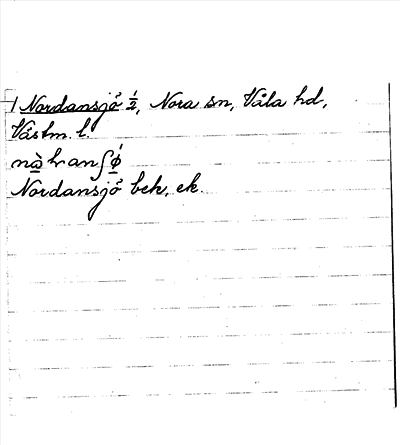 1 Nordansjö ½, Nora sn, Våla hd,
Västm. l.
nàranʃǿ
Nordansjö beh, ek.